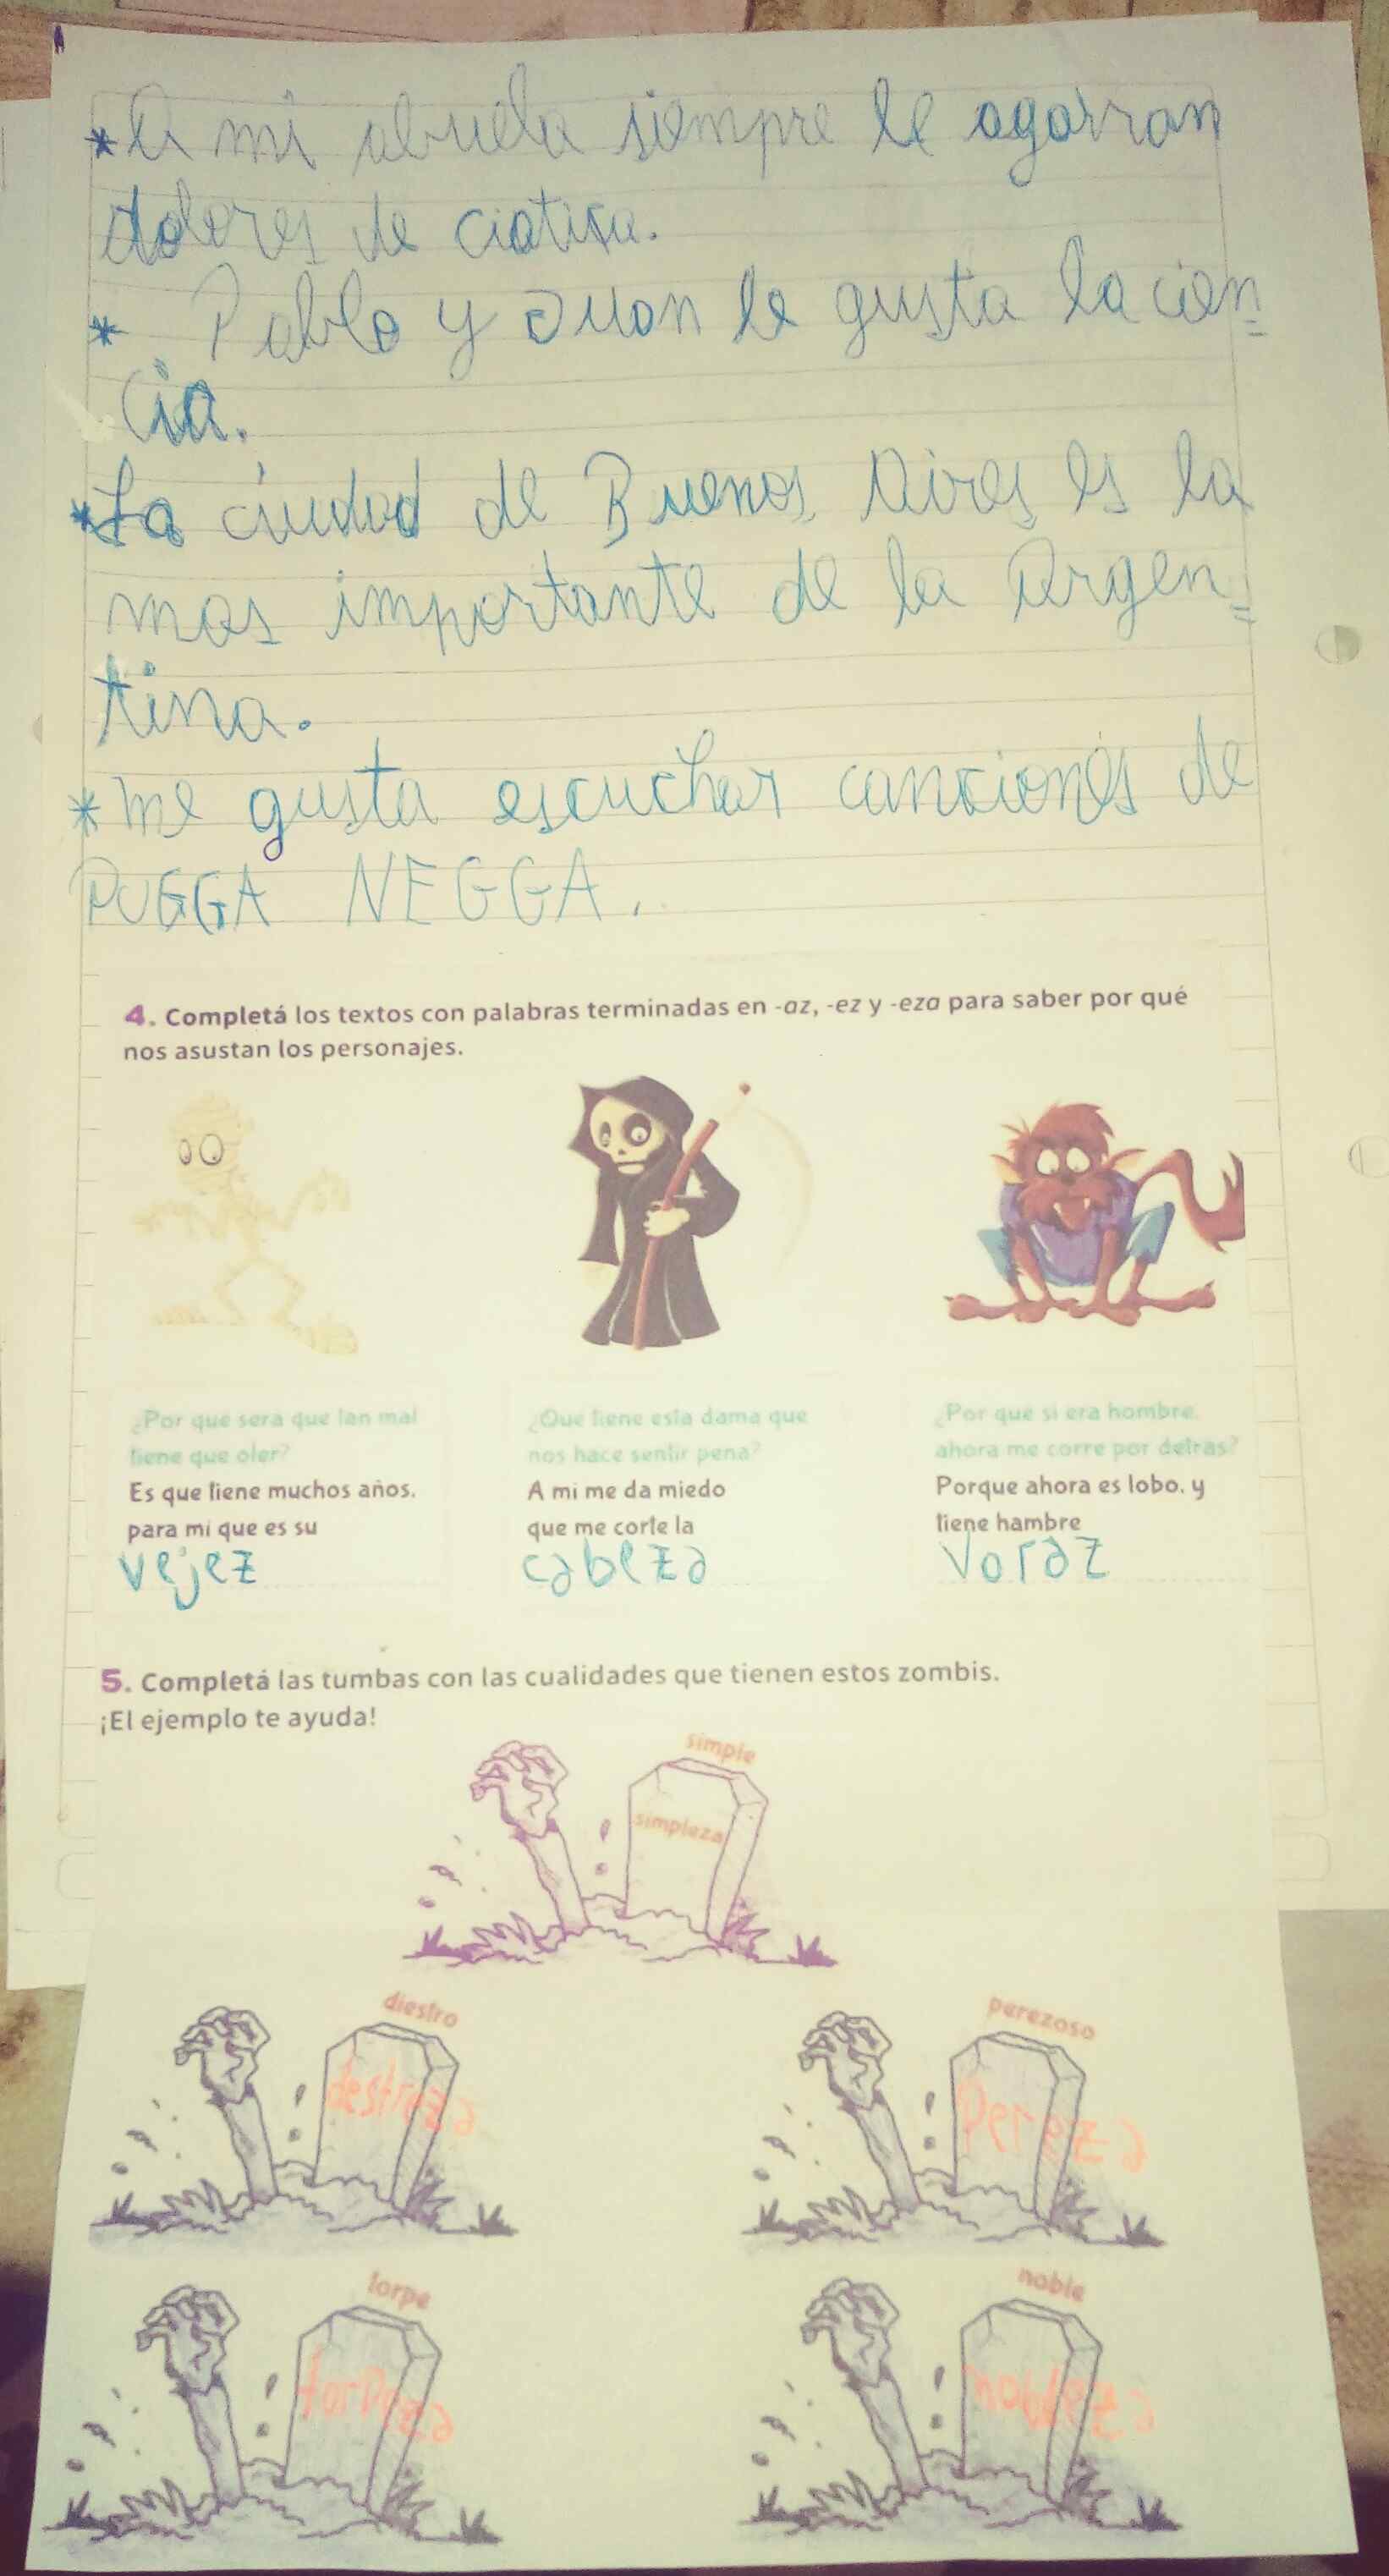 * A mi abuela siempre le agarran
dolores de ciatica.
* Pablo y Juan le gusta la cien=
cia.
* La ciudad de Buenos Aires es la
mas importante de la Argen=
tina.
* me gusta escuchar canciones de
PUGGA NEGGA.
4. Completá los textos con palabras terminadas en -az, -ez y -eza para saber por qué
nos asustan los personajes.
¿Por qué será que tan mal
tiene que oler?
Es que tiene muchos años,
para mí que es su
vejez
¿Qué tiene esta dama que
nos hace sentir pena?
A mi me da miedo
que me corte la
cabeza
¿Por qué si era hombre,
ahora me corre por detrás?
Porque ahora es lobo, y
tiene hambre
voraz
5. Completá las tumbas con las cualidades que tienen estos zombis.
¡El ejemplo te ayuda!
simple
simpleza
diestro
destreza
perezoso
Pereza
torpe
torpeza
noble
nobleza